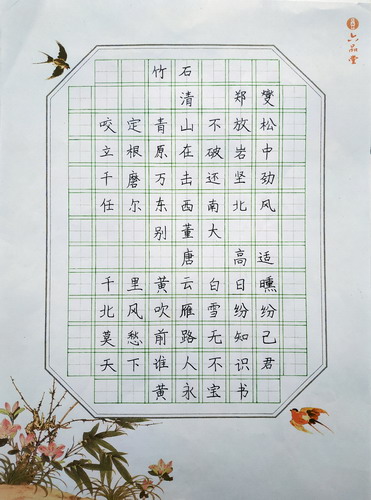 六品堂
竹石
清 郑燮
咬定青山不放松
立根原在破岩中
千磨万击还坚劲
任尔东西南北风
别董大
唐 高适
千里黄云白日曛
北风吹雁雪纷纷
莫愁前路无知己
天下谁人不识君
黄永宝书